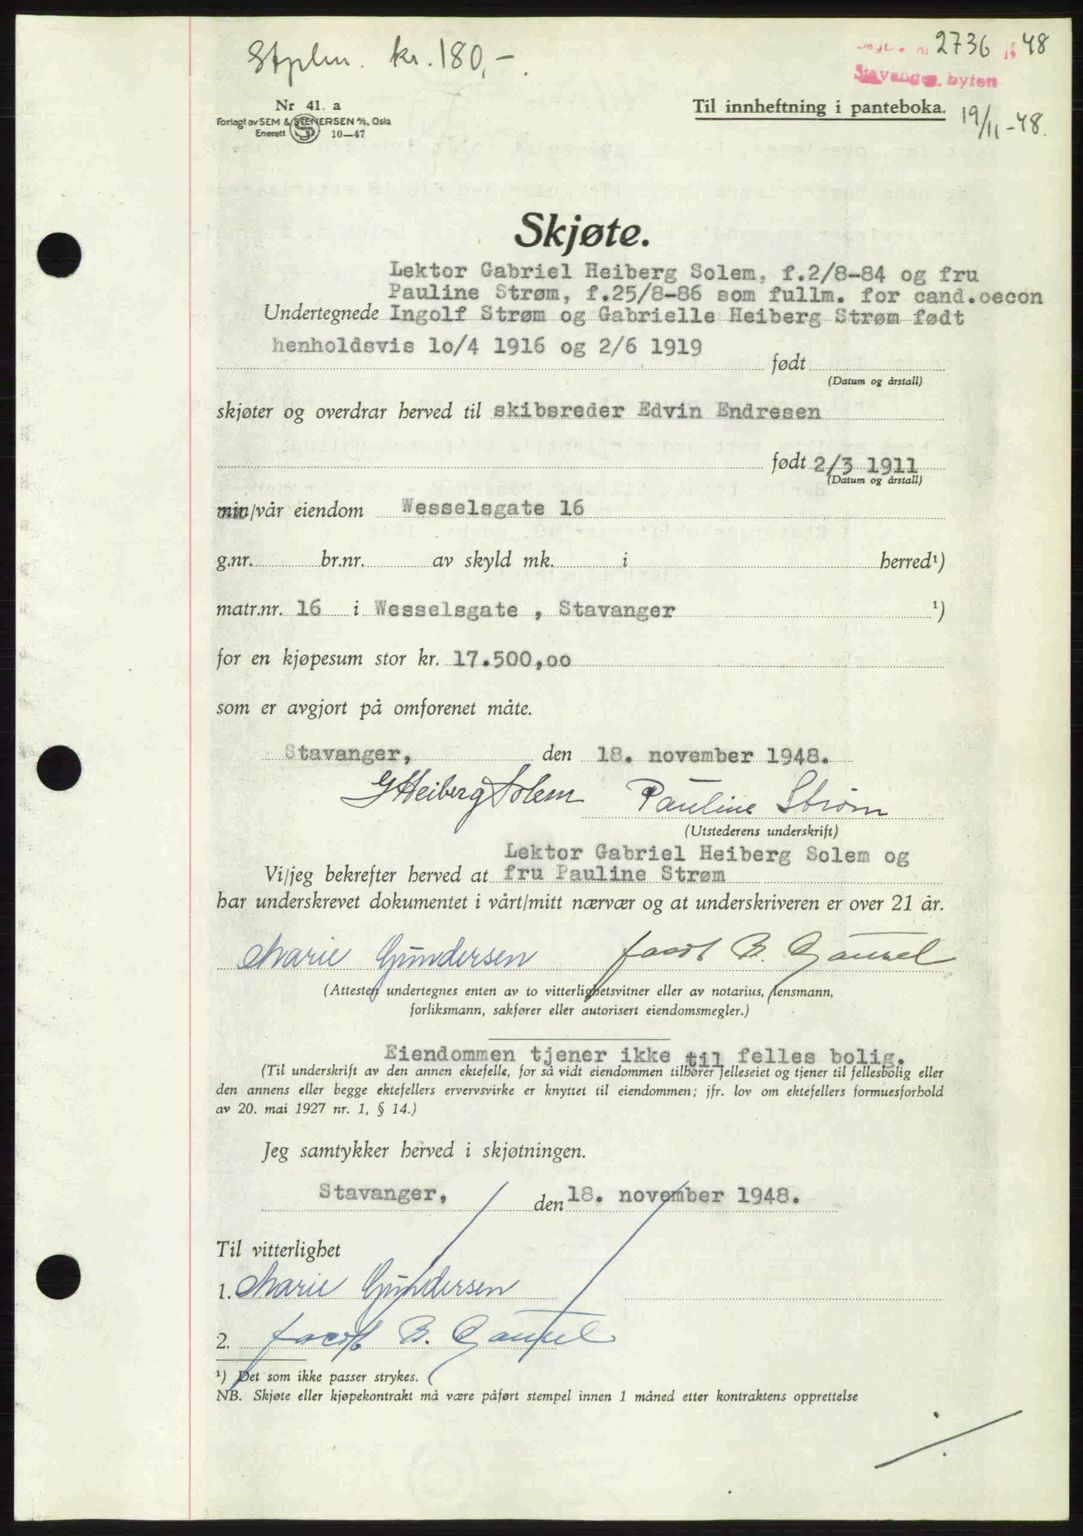 Stplm. kr. 180,-.
2736 48
Stavanger byfon
Nr 41. a
Forlagt av SEM & STENERSEN A/S, Oslo
Enerett 10—47
Til innheftning i panteboka.
19/11-48.
Skjøte.
Lektor Gabriel Heiberg Solem, f.2/8-84 og fru
Pauline Strøm, f.25/8-86 som fullm. for cand.oecon
Undertegnede Ingolf Strøm og Gabrielle Heiberg Strøm født
henholdsvis 1o/4 1916 og 2/6 1919
født
(Datum og årstall)
skjøter og overdrar herved til skibsreder Edvin Endresen
født 2/3 1911
(Datum og årstall)
min/vår eiendom Wesselsgate 16
g.nr. br.nr. av skyld mk. i herred¹)
matr.nr. 16 i Wesselsgate , Stavanger ¹)
for en kjøpesum stor kr. 17.500,oo
som er avgjort på omforenet måte.
Stavanger, den 18. november 1948.
G Heiberg Solem Pauline Strøm
(Utstederens underskrift)
Lektor Gabriel Heiberg Solem og
Vi/jeg bekrefter herved at fru Pauline Strøm
har underskrevet dokumentet i vårt/mitt nærvær og at underskriveren er over 21 år.
Marie Gundersen Jacob B. Gausel
(Attesten undertegnes enten av to vitterlighetsvitner eller av notarius, lensmann,
forliksmann, sakfører eller autorisert eiendomsmegler.)
Eiendommen tjener ikke til felles bolig.
(Til underskrift av den annen ektefelle, for så vidt eiendommen tilhører felleseiet og tjener til fellesbolig eller
den annens eller begge ektefellers ervervsvirke er knyttet til eiendommen; jfr. lov om ektefellers formuesforhold
av 20. mai 1927 nr. 1, § 14.)
Jeg samtykker herved i skjøtningen.
Stavanger, den 18. november 1948.
Til vitterlighet
1. Marie Gundersen
2. Jacob B. Gausel
¹) Det som ikke passer strykes.
NB. Skjøte eller kjøpekontrakt må være påført stempel innen 1 måned etter kontraktens opprettelse